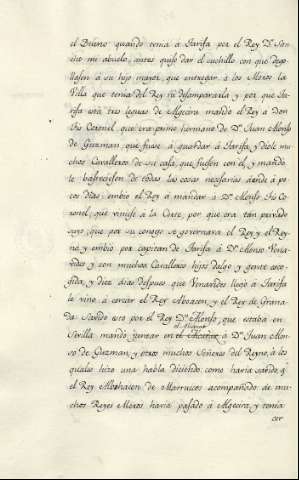 el Bueno quando tenia á Tarifa por el Rey Dn. San
cho mi abuelo, antes quiso dar el cuchillo con que dego
llasen á su hijo mayor, que entregar á los Moros la
Villa que tenia del Rey ni desampararla y por que Ta
rifa está tres leguas de Algecira mandó el Rey a Don
Jio Coronel, que era primo hermano de Dn. Juan Alonso
de Guzman, que fuese á guardar á Tarifa, y diole mu
chos Cavalleros de su casa, que fuesen con el, y mando
le bastecersen de todas las cosas necesarias dende á po
cos dias embio el Rey á mandar á Dn. Alonso Jio Co
ronel, que viniese á la Corte, por que era tan privado
suyo, que por su consejo se governava el Rey y el Rey
no, y embio por capitan de Tarifa á Dn. Alonso Vena
vides y con muchos Cavalleros hijos dalgo y gente esco
gida, y diez dias despues que Venavides llegó á Tarifa
la vino á cercar el Rey Aboacen, y el Rey de Grana
da. Savido esto por el Rey Dn. Alonso, que estava en
el Alcazar
Sevilla mandó juntar en á Dn. Juan Alon
so de Guzman, y otros muchos Señores del Reyno, á los
quales hizo una habla diciendo como havia savido q.
el Rey Abohacen de Marruecos acompañado de mu
chos Reyes Moros havia pasado á Algecira, y tenia
cer